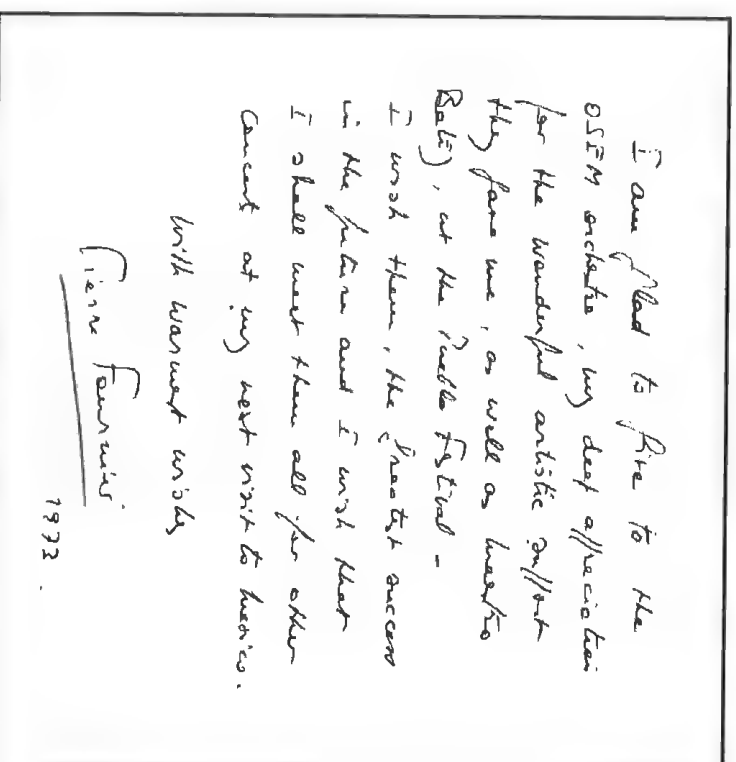 I am glad to give to the
OSEM orchestra, my deep appreciation
for the wonderful artistic support
they gave me, as well as maestro
Batiz, at the Puebla Festival -
I wish them, the greatest success
in the future and I wish that
I shall meet them all for other
Concert at my next visit to Mexico.
with warmest wishes
Pierre Fournier
1973.